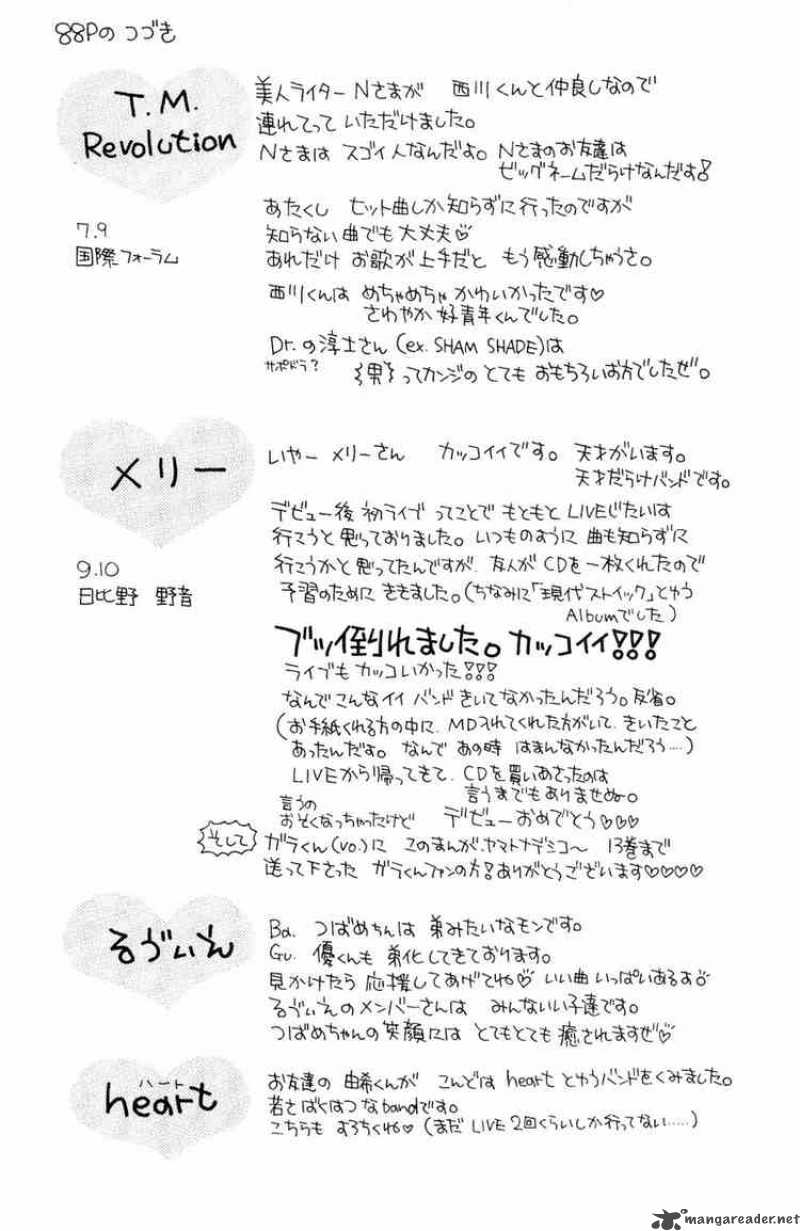 88Pの つづき
T.M.
Revolution
7.9
国際フォーラム
美人ライター Nさまが 西川くんと仲良しなので
連れてって いただけました。
Nさまは スゴイ人なんだよ。Nさまのお友達は
ビッグネームだらけなんだよ!
あたくし ヒット曲しか知らずに行ったのですが
知らない曲でも大丈夫♡
あれだけ お歌が上手だと もう感動しちゃうさ。
西川くんは めちゃめちゃ かわいかったです♡
さわやか 好青年くんでした。
Dr.の淳士さん(ex. SHAM SHADE)は
サポドラ?
{男}ってカンジの とても おもちろいお方でしたぜ。
メリー
9.10
日比野 野音
いやー メリーさん カッコイイです。 天才がいます。
天才だらけバンドです。
デビュー後 初ライブ ってことで もともと LIVEじたいは
行こうと思っておりました。いつものように 曲も知らずに
行こうかと思ってたんですが、友人が CDを一枚くれたので
予習のために ききました。(ちなみに「現代ストイック」とゆう
Albumでした)
ブッ倒れました。カッコイイ!!!
ライブも カッコいかった!!!
なんで こんな イイ バンド きいてなかったんだろう。反省。
(お手紙くれる方の中に、MD入れてくれた方がいて、きいたこと
あったんだよ。なんで あの時 はまんなかったんだろう‥‥)
LIVEから帰ってきて、CDを買いあさったのは
言うまでもありませぬ。
言うの
おそくなっちゃったけど デビューおめでとう♡♡♡
そして ガラくん(vo.)に このまんが、ヤマトナデシコ〜 13巻まで
送って下さった ガラくんファンの方!ありがとうございます♡♡♡♡
るゔぃえ
Ba. つばめちんは 弟みたいなモンです。
Gu. 優くんも 弟化してきております。
見かけたら 応援してあげてね♡ いい曲いっぱいあるよ♡
るゔぃえのメンバーさんは みんないい子達です。
つばめちゃんの笑顔には とてもとても癒されますぜ♡
ハート
heart
お友達の 由希くんが こんどは heart とゆうバンドをくみました。
若さばくはつなbandです。
こちらも よろちくね♡ (まだ LIVE 2回くらいしか行ってない‥‥‥)
mangareader.net